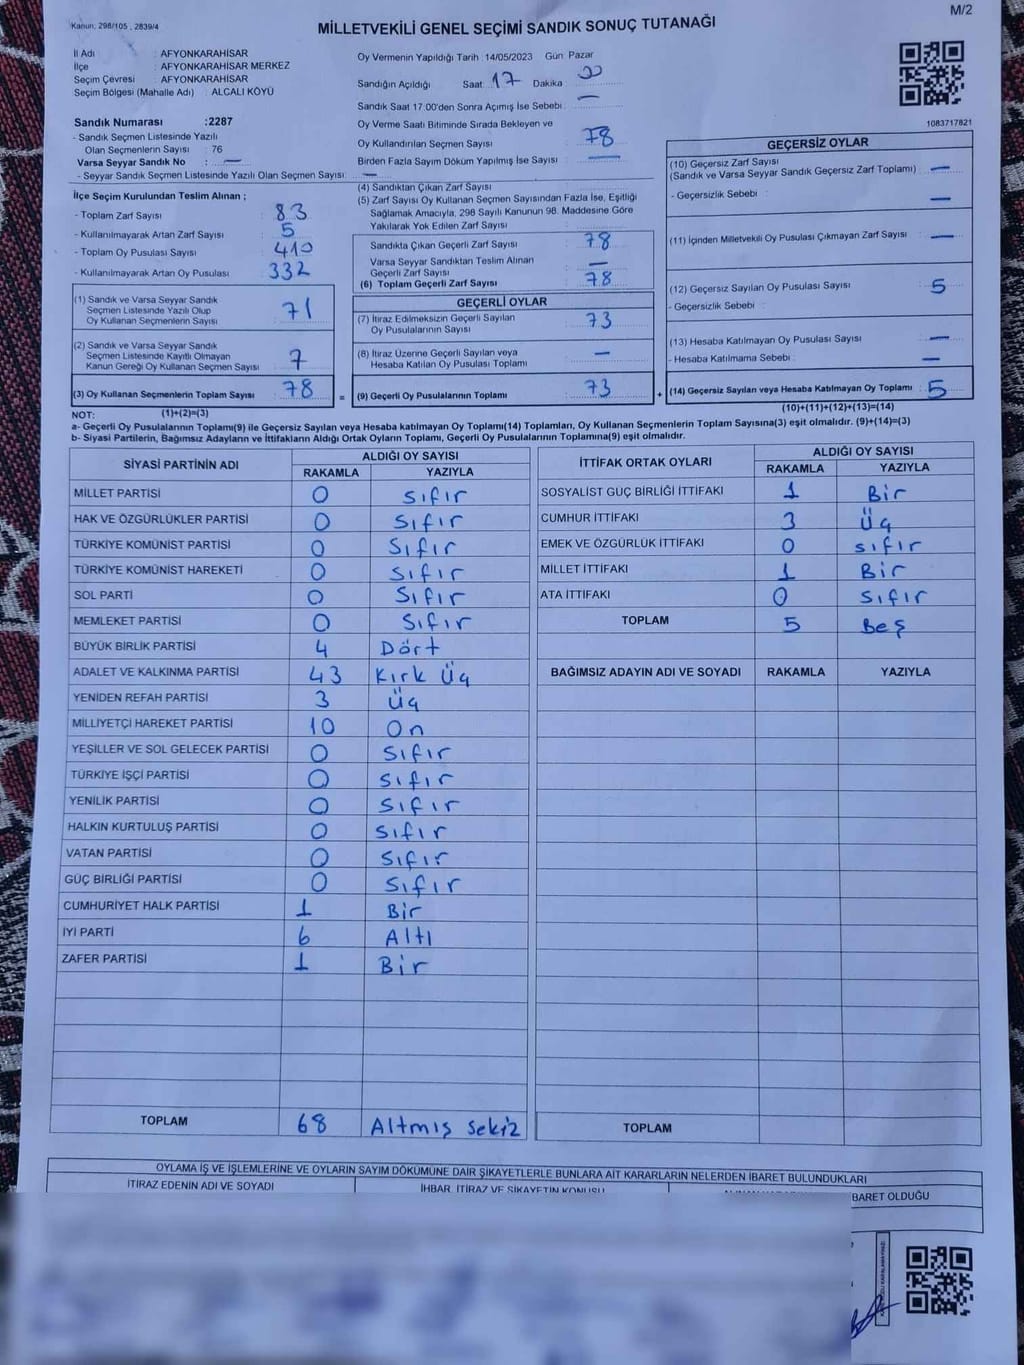 Kanun: 298/105 , 2839/4
MİLLETVEKİLİ GENEL SEÇİMİ SANDIK SONUÇ TUTANAĞI
M/2
İl Adı : AFYONKARAHİSAR
İlçe : AFYONKARAHİSAR MERKEZ
Seçim Çevresi : AFYONKARAHİSAR
Seçim Bölgesi (Mahalle Adı) : ALCALI KÖYÜ
Oy Vermenin Yapıldığı Tarih :14/05/2023 Gün Pazar
Sandığın Açıldığı Saat 17 Dakika 00
Sandık Saat 17:00'den Sonra Açımış İse Sebebi : —
Oy Verme Saati Bitiminde Sırada Bekleyen ve
Oy Kullandırılan Seçmen Sayısı : 78
Birden Fazla Sayım Döküm Yapılmış İse Sayısı : —
1083717821
Sandık Numarası :2287
- Sandık Seçmen Listesinde Yazılı
Olan Seçmenlerin Sayısı : 76
Varsa Seyyar Sandık No : —
- Seyyar Sandık Seçmen Listesinde Yazılı Olan Seçmen Sayısı: —
İlçe Seçim Kurulundan Teslim Alınan ;
- Toplam Zarf Sayısı : 83
- Kullanılmayarak Artan Zarf Sayısı : 5
- Toplam Oy Pusulası Sayısı : 410
- Kullanılmayarak Artan Oy Pusulası : 332
(1) Sandık ve Varsa Seyyar Sandık
Seçmen Listesinde Yazılı Olup
Oy Kullanan Seçmenlerin Sayısı : 71
(2) Sandık ve Varsa Seyyar Sandık
Seçmen Listesinde Kayıtlı Olmayan
Kanun Gereği Oy Kullanan Seçmen Sayısı : 7
(3) Oy Kullanan Seçmenlerin Toplam Sayısı : 78
(4) Sandıktan Çıkan Zarf Sayısı :
(5) Zarf Sayısı Oy Kullanan Seçmen Sayısından Fazla İse, Eşitliği
Sağlamak Amacıyla, 298 Sayılı Kanunun 98. Maddesine Göre
Yakılarak Yok Edilen Zarf Sayısı :
Sandıkta Çıkan Geçerli Zarf Sayısı : 78
Varsa Seyyar Sandıktan Teslim Alınan
Geçerli Zarf Sayısı : —
(6) Toplam Geçerli Zarf Sayısı : 78
GEÇERLİ OYLAR
(7) İtiraz Edilmeksizin Geçerli Sayılan
Oy Pusulalarının Sayısı : 73
(8) İtiraz Üzerine Geçerli Sayılan veya
Hesaba Katılan Oy Pusulası Toplamı : —
= (9) Geçerli Oy Pusulalarının Toplamı : 73
GEÇERSİZ OYLAR
(10) Geçersiz Zarf Sayısı
(Sandık ve Varsa Seyyar Sandık Geçersiz Zarf Toplamı) : —
- Geçersizlik Sebebi : —
(11) İçinden Milletvekili Oy Pusulası Çıkmayan Zarf Sayısı : —
(12) Geçersiz Sayılan Oy Pusulası Sayısı : 5
- Geçersizlik Sebebi :
(13) Hesaba Katılmayan Oy Pusulası Sayısı : —
- Hesaba Katılmama Sebebi : —
+ (14) Geçersiz Sayılan veya Hesaba Katılmayan Oy Toplamı : 5
NOT: (1)+(2)=(3)
(10)+(11)+(12)+(13)=(14)
a- Geçerli Oy Pusulalarının Toplamı(9) ile Geçersiz Sayılan veya Hesaba katılmayan Oy Toplamı(14) Toplamları, Oy Kullanan Seçmenlerin Toplam Sayısına(3) eşit olmalıdır. (9)+(14)=(3)
b- Siyasi Partilerin, Bağımsız Adayların ve İttifakların Aldığı Ortak Oyların Toplamı, Geçerli Oy Pusulalarının Toplamına(9) eşit olmalıdır.
SİYASİ PARTİNİN ADI ALDIĞI OY SAYISI
RAKAMLA YAZIYLA
MİLLET PARTİSİ 0 Sıfır
HAK VE ÖZGÜRLÜKLER PARTİSİ 0 Sıfır
TÜRKİYE KOMÜNİST PARTİSİ 0 Sıfır
TÜRKİYE KOMÜNİST HAREKETİ 0 Sıfır
SOL PARTİ 0 Sıfır
MEMLEKET PARTİSİ 0 Sıfır
BÜYÜK BİRLİK PARTİSİ 4 Dört
ADALET VE KALKINMA PARTİSİ 43 Kırk Üç
YENİDEN REFAH PARTİSİ 3 Üç
MİLLİYETÇİ HAREKET PARTİSİ 10 On
YEŞİLLER VE SOL GELECEK PARTİSİ 0 Sıfır
TÜRKİYE İŞÇİ PARTİSİ 0 Sıfır
YENİLİK PARTİSİ 0 Sıfır
HALKIN KURTULUŞ PARTİSİ 0 Sıfır
VATAN PARTİSİ 0 Sıfır
GÜÇ BİRLİĞİ PARTİSİ 0 Sıfır
CUMHURİYET HALK PARTİSİ 1 Bir
İYİ PARTİ 6 Altı
ZAFER PARTİSİ 1 Bir
TOPLAM 68 Altmış Sekiz
İTTİFAK ORTAK OYLARI ALDIĞI OY SAYISI
RAKAMLA YAZIYLA
SOSYALİST GÜÇ BİRLİĞİ İTTİFAKI 1 Bir
CUMHUR İTTİFAKI 3 Üç
EMEK VE ÖZGÜRLÜK İTTİFAKI 0 Sıfır
MİLLET İTTİFAKI 1 Bir
ATA İTTİFAKI 0 Sıfır
TOPLAM 5 Beş
BAĞIMSIZ ADAYIN ADI VE SOYADI RAKAMLA YAZIYLA
TOPLAM
OYLAMA İŞ VE İŞLEMLERİNE VE OYLARIN SAYIM DÖKÜMÜNE DAİR ŞİKAYETLERLE BUNLARA AİT KARARLARIN NELERDEN İBARET BULUNDUKLARI
İTİRAZ EDENİN ADI VE SOYADI İHBAR, İTİRAZ VE ŞİKAYETİN KONUSU BARET OLDUĞU